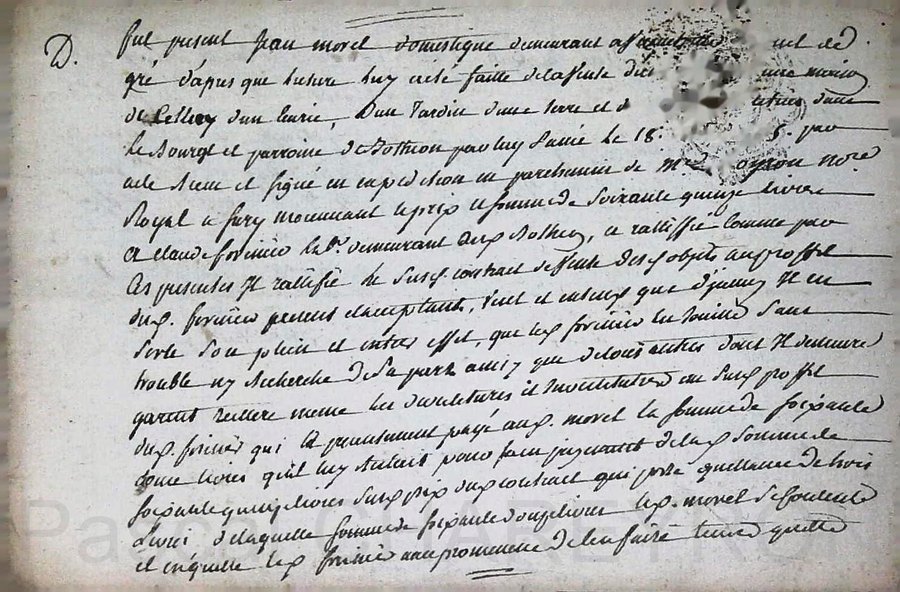 D. fut present Jean morel domestique demeurant a
gré d'apres que lecture luy a ete faitte de la vente une maison
d'un Jardin d'une terre et dans
le Bourg et parroisse de Bothéon par luy passé le 18 par
acte reçeu et signé en expedition en parchemin de me noré
Royal a Sury moyennant le prix et somme de soixante quinze livres
a Claude forissier demeurant aud. Bothéon, a rattiffié comme par
ces presentes Il rattifie le susd. contrat de vente desd. objets au proffit
dud. forissier present et acceptant, veut et entend que d'jamais Il en
sorte son plein et entier effet, que led. forissier en Jouisse sans
trouble ny Recherche de sa part ainsy que de tous autres dont Il demeure
garent reitere meme les et Investitures au susd. proffit
dud. forissier qui a presentement payé aud. morel la somme de soixante
douze livres qu'il luy Restoit pour faire payement de lad. somme de
soixante quinze livres susd. prix dud. contrat qui porte quittance de trois
livres de laquelle somme de soixante douze livres led. morel se contente
et en quitte led. forissier avec promesse de l'en faire tenir quitte
Pascal CHARRET